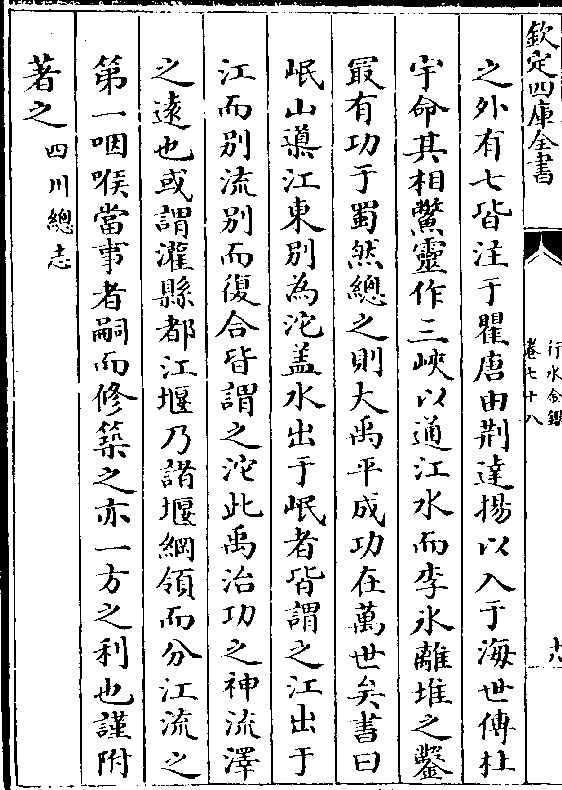 欽定四庫全書
行水金鑑
卷七十八
十八
之外有七皆注于瞿唐由荆達揚以入于海世傳杜
宇命其相鱉靈作三峽以通江水而李氷離堆之鑿
最有功于蜀然總之則大禹平成功在萬世矣書曰
岷山導江東別為沱盖水出于岷者皆謂之江出于
江而別流別而復合皆謂之沱此禹治功之神流澤
之遠也或謂灌縣都江堰乃諸堰綱領而分江流之
第一咽喉當事者嗣而修築之亦一方之利也謹附
著之四川總志